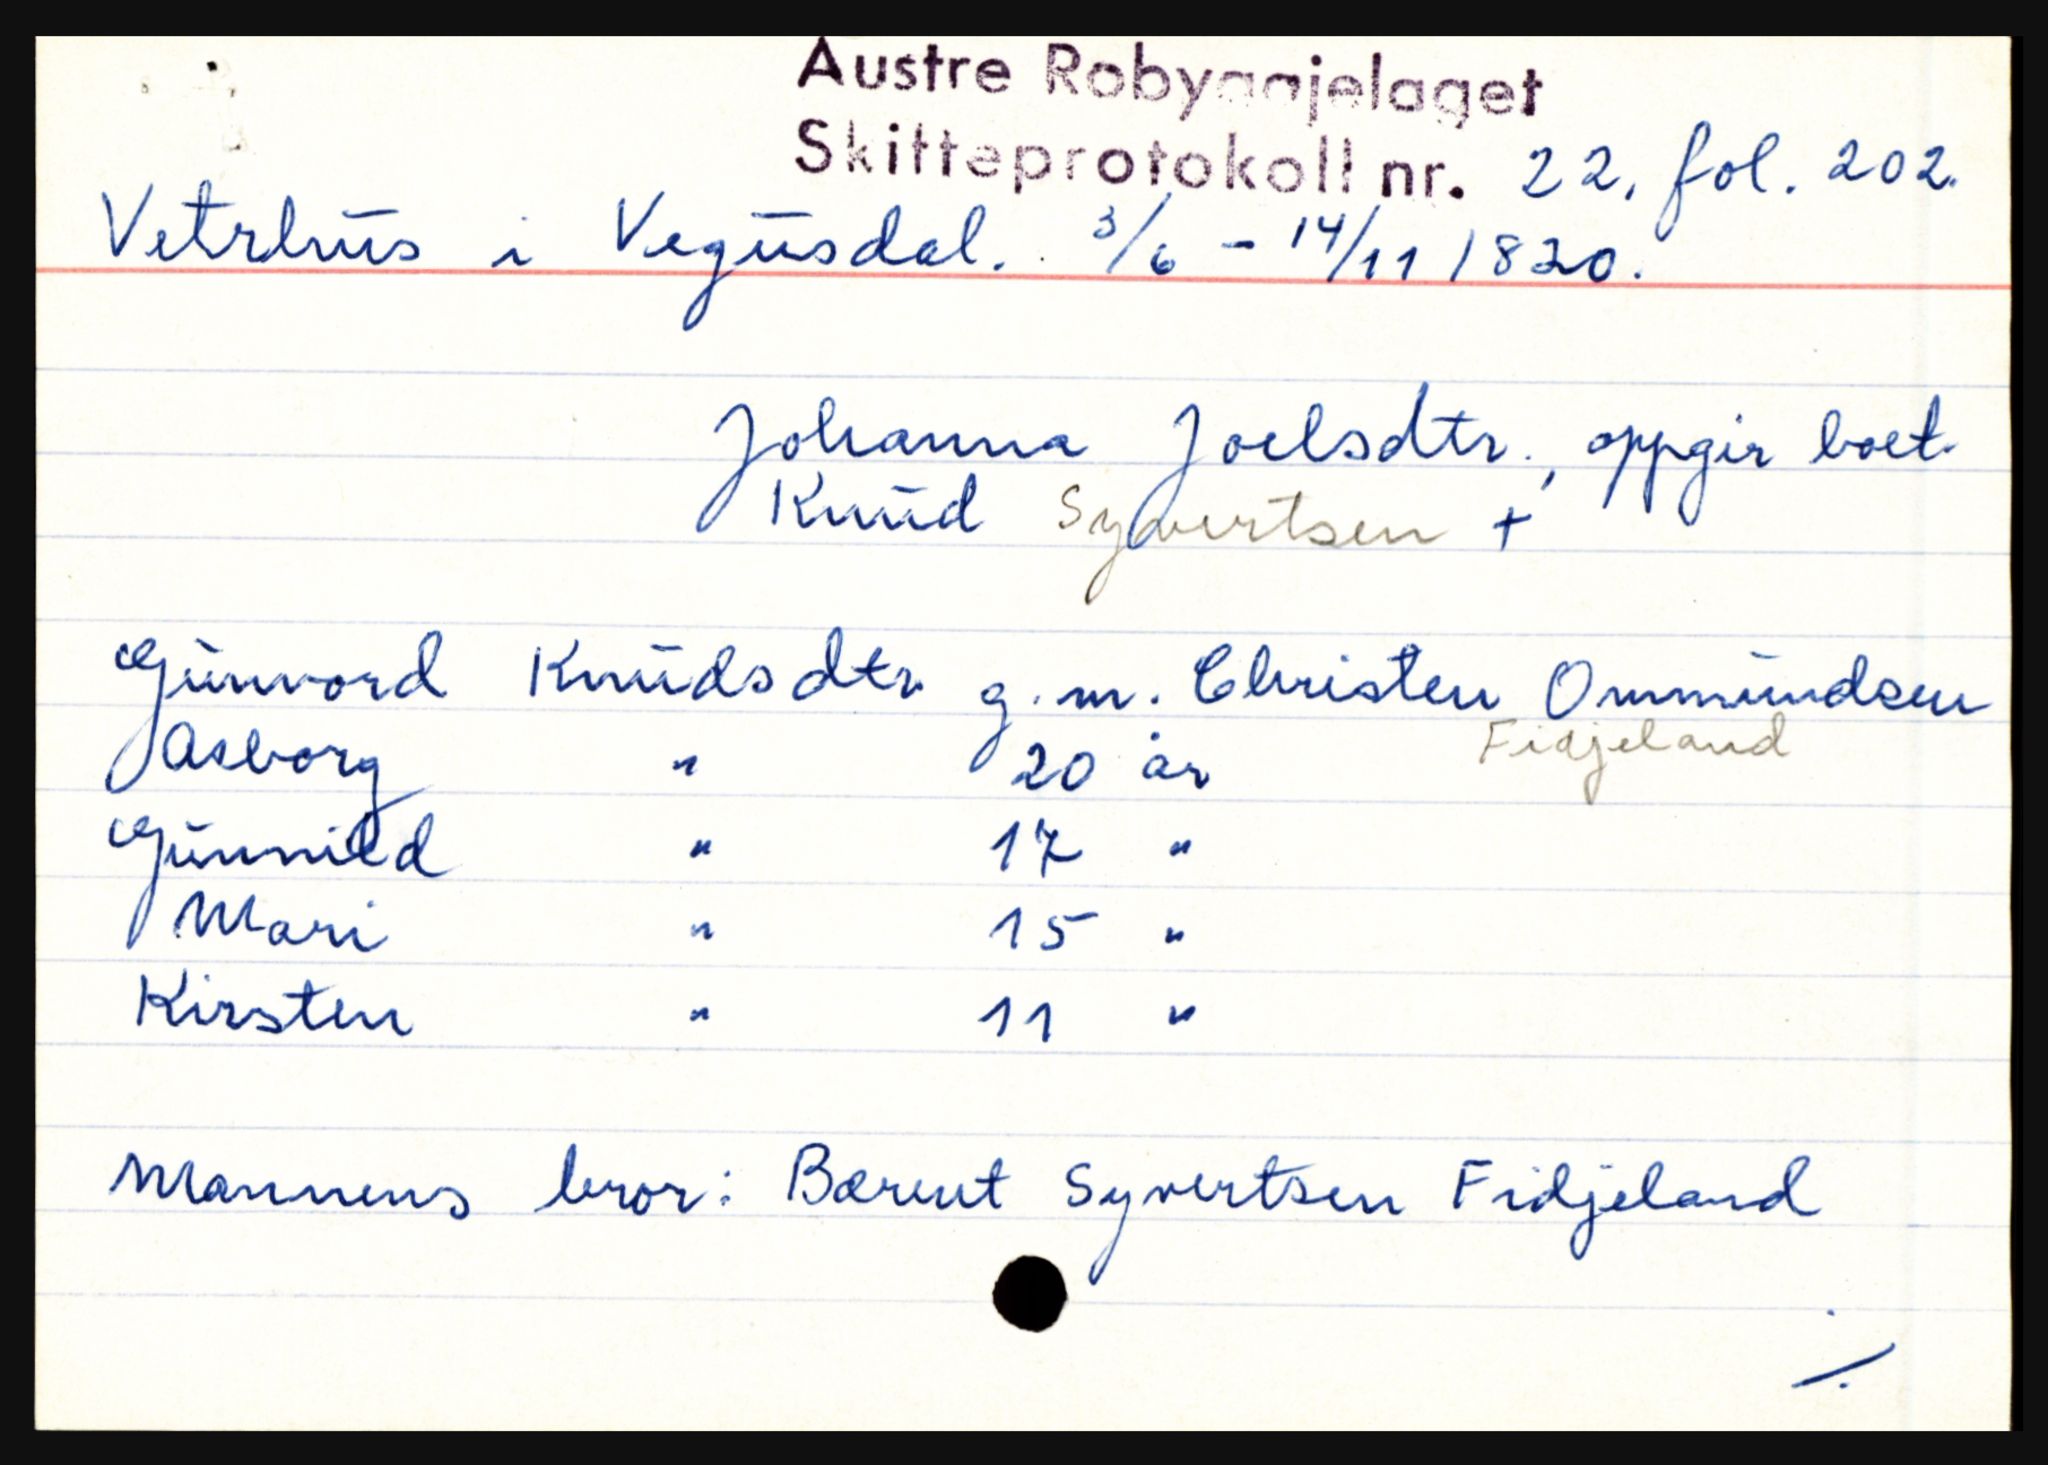 Austre Robyggjelaget
Skifteprotokoll nr. 22, fol. 202.
Vetrhus i Vegusdal. 3/6 - 14/11 1820.
Johanna Joelsdtr., oppgir boet.
Knud Syvertsen +
Gunvord Knudsdtr g.m. Christen Ommundsen
Fidjeland
Asborg " 20 år
Gunnild " 17 "
Mari " 15 "
Kirsten " 11 "
Mannens bror: Bærent Syvertsen Fidjeland
./.